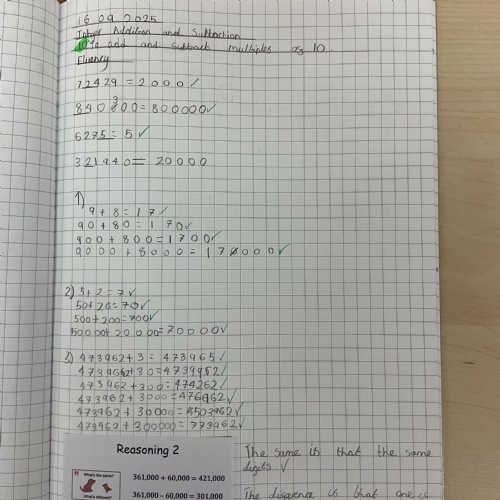 16.09.2025
Integer Addition and Subtraction
to add and subtract multiples of 10.
Fluency
72429 = 2000
840300 = 800000
6275 = 5
321940 = 20000
1)
9 + 8 = 17
90 + 80 = 170
900 + 800 = 1700
9000 + 8000 = 17000
2) 5 + 2 = 7
50 + 20 = 70
500 + 200 = 700
50000 + 20000 = 70000
3) 473962 + 3 = 473965
473962 + 30 = 473992
473962 + 300 = 474262
473962 + 3000 = 476962
473962 + 30000 = 503962
473962 + 300000 = 773962
Reasoning 2
What's the same?
What's different?
361,000 + 60,000 = 421,000
361,000 – 60,000 = 301,000
The same is that the same
digits.
The is that one is